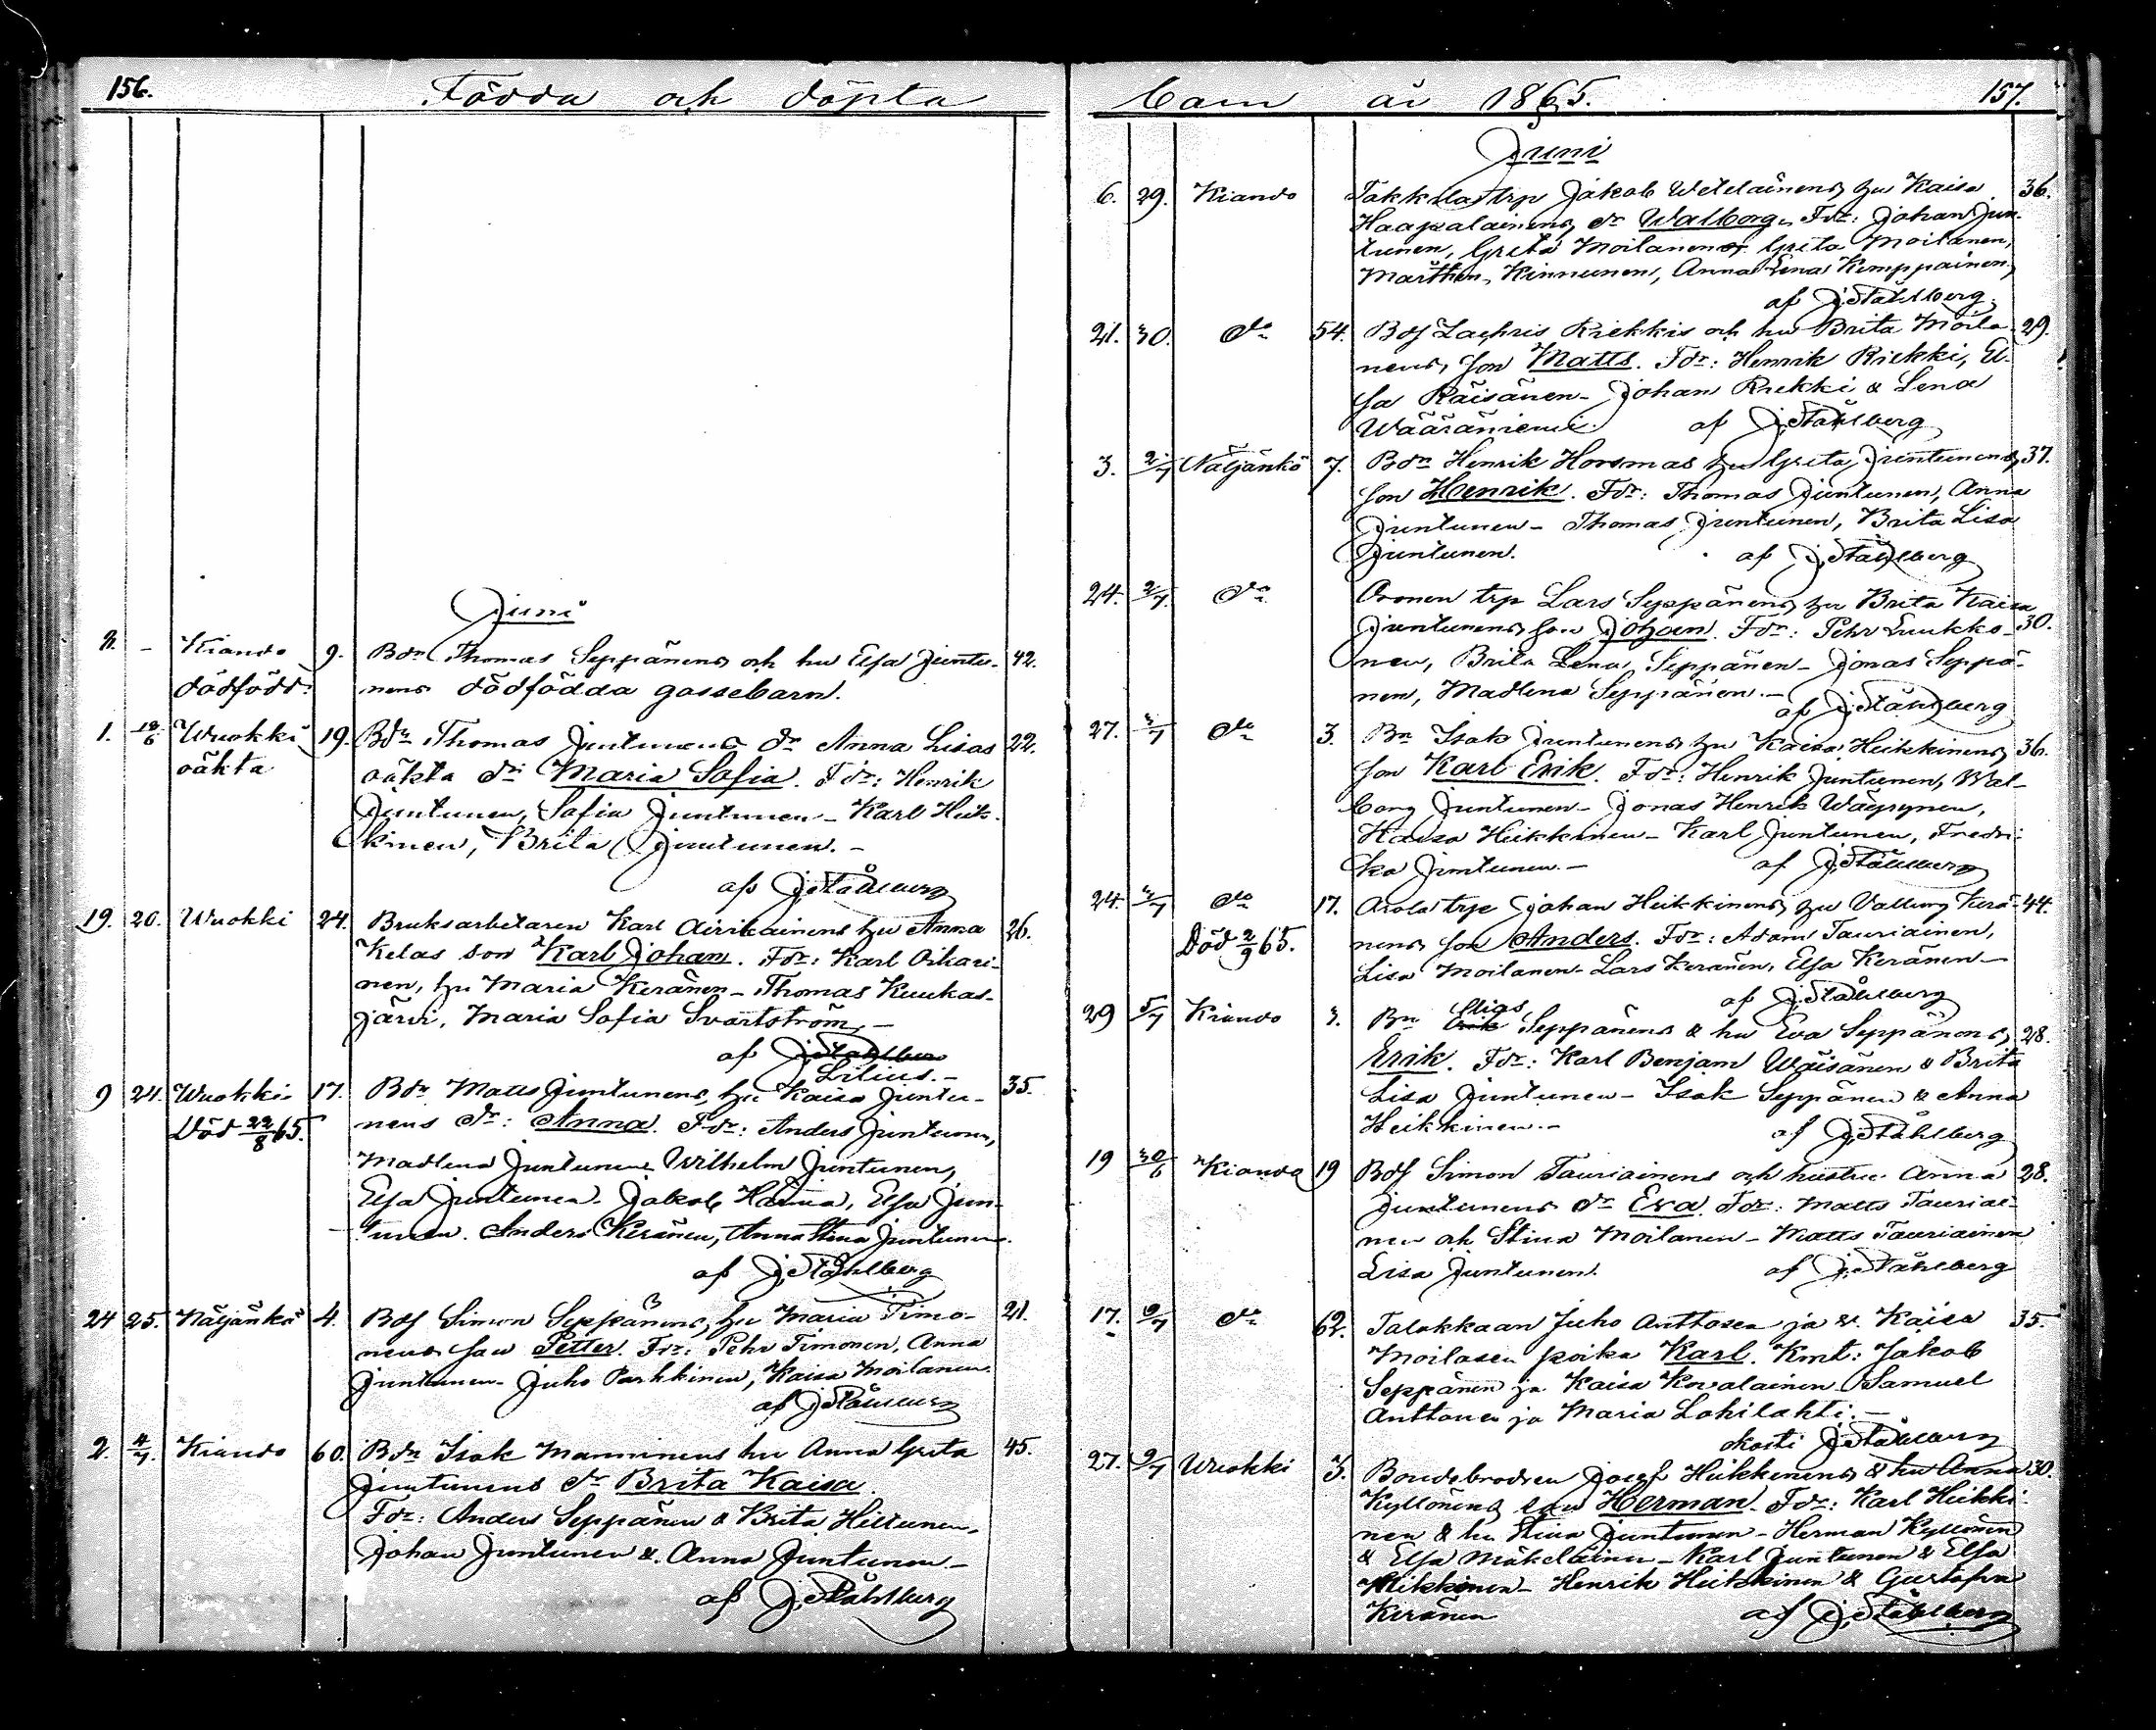 156.
Födda och döpta
Juni
2. - Kiando 9. Bdn Thomas Seppänens och hu Elsa Juntu- 42.
dödfödd. nens dödfödda gossebarn.
1. 18/6 Wuokki 19. Bdn Thomas Juntunens dr Anna Lisas 22.
oäkta oäkta dr: Maria Sofia. Fdr: Henrik
Juntunen, Sofia Juntunen - Karl Heik-
kinen, Brita Juntunen. -
af J. Ståhlberg
19. 20. Wuokki 24. Bruksarbetaren Karl Airikainens hu Anna 26.
Kelas son Karl Johan. Fdr: Karl Oikari-
nen, hu Maria Keränen - Thomas Kuukas-
järvi, Maria Sofia Svartström, -
af J. Ståhlberg
Lilius. -
9 24. Wuokki 17. Bdn Matts Juntunens, hu Kaisa Juntu- 35.
Död 22/8 65. nens dr: Anna. Fdr: Anders Juntunen,
Madlena Juntunen Wilhelm Juntunen,
Elsa Juntunen. Jakob Harma, Elsa Jun-
tunen. Anders Keränen, Anna Stina Juntunen.
af J. Ståhlberg
24 25. Näljänkä 4. Bdf Simon Seppänens, hu Maria Timo- 21.
nens son Petter. Fdr: Pehr Timonen, Anna
Juntunen - Juho Parkkinen, Kaisa Moilanen.
af J. Ståhlberg
2. 4/7. Kiando 60. Bdn Isak Manninens hu Anna Greta 45.
Juntunens dr Brita Kaisa.
Fdr: Anders Seppänen & Brita Hiltunen.
Johan Juntunen & Anna Juntunen -
af J. Ståhlberg
barn år 1865. 157.
Juni
6. 29. Kiando Takkula trp Jakob Weteläinens hu Kaisa 36.
Haapalainens, dr Walborg. Fdr: Johan Jun-
tunen, Greta Moilanen Greta Moilanen,
Marthen Kinnunen, Anna Lena Kemppainen,
af J. Ståhlberg.
21. 30. do 54. Bdf Zachris Riekkis och hu Brita Moila- 29.
nens, son Matts. Fdr: Henrik Riekki, El-
sa Räisänen - Johan Riekki & Lena
Wääräniemi. af J. Ståhlberg
3. 2/7 Näljänkä 7. Bdn Henrik Hovsmas hu Greta Juntunens 37.
son Henrik. Fdr: Thomas Juntunen, Anna
Juntunen - Thomas Juntunen, Brita Lisa
Juntunen. af J. Ståhlberg
24. 2/7. do trp Lars Seppänens, hu Brita Kaisa
Juntunens, son Johan. Fdr: Pehr Luukko- 30.
nen, Brita Lena Seppänen - Jonas Seppä-
nen, Madlena Seppänen. -
af J. Ståhlberg
27. 3/7 do 3. Bn Isak Juntunens hu Kaisa Heikkinens 36.
son Karl Erik. Fdr: Henrik Juntunen, Wal-
borg Juntunen - Jonas Henrik Wäyrynen,
Kaisa Heikkinen - Karl Juntunen, Fredri-
ka Juntunen. - af J. Ståhlberg
24. 3/7 do 17. Arola trp Johan Heikkinens hu Valborg Kerä- 44.
Död 2/9 65. nens son Anders. Fdr: Adam Tauriainen,
Lisa Moilanen - Lars Keränen, Elsa Keränen -
af J. Ståhlberg
Stigs
29 5/7 Kiando 3. Bn Seppänens & hu Eva Seppänens 28.
Erik. Fdr: Karl Benjam Wäisänen & Brita
Lisa Juntunen - Isak Seppänen & Anna
Heikkinen. - af J. Ståhlberg
19 30/6 Kiando 19 Bdf Simon Tauriainens och hustru Anna 28.
Juntunens dr Eva. Fdr: Matts Tauriai-
nen och Stina Moilanen - Matts Tauriainen
Lisa Juntunen. af J. Ståhlberg
17. 9/7 do 62. Talokkaan Juho Anttosen ja v. Kaisa 35.
Moilasen poika Karl. Kmt: Jakob
Seppänen ja Kaisa Kovalainen - Samuel
Anttonen ja Maria Lohilahti. -
kasti J. Ståhlberg
27. 9/7 Wuokki 3. Bondebrodren Josef Heikkinens & hu Anna 30.
Kyllönens son Herman. Fdr: Karl Heikki-
nen & hu Stina Juntunen - Herman Kyllönen
& Elsa Mäkeläinen - Karl Juntunen & Elsa
Heikkinen - Henrik Heikkinen & Gustafva
Keränen af J. Ståhlberg